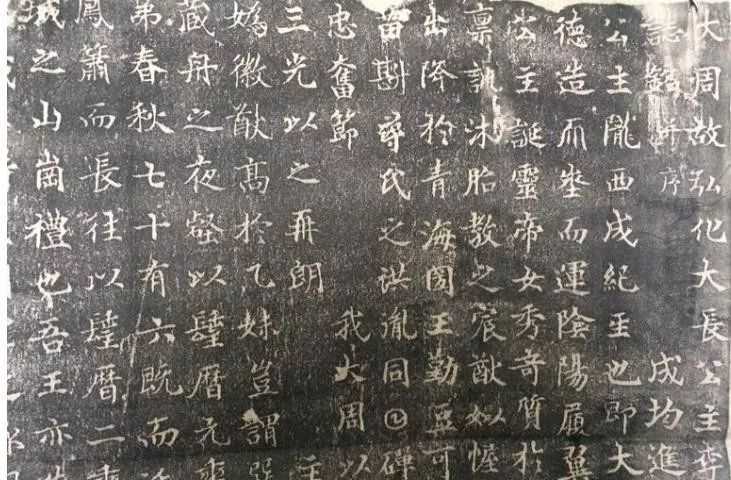 大周故弘化大長公主李
誌銘并序　成均進
公主隴西成紀𤯔也即大
德造而埊而運陰陽履翼
公主誕靈帝女秀奇質於
稟訓沐胎教之宸猷姒幄
出降於青海國王勤豆可
苗斟尋氏之洪胤同𡆠磾
忠奮節　我大周以
三光以之再朗　主
媯徽猷高於乙妹豈謂巽
藏舟之夜壑以𨲢曆元
第春秋七十有六既而延
鳳簫而長往以𨲢曆二
城之山崗禮也吾王亦